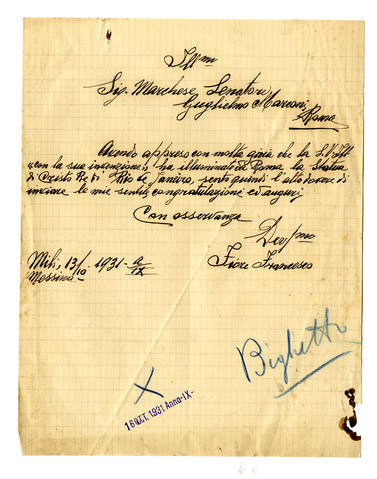 Ill.mo
Sig. Marchese Senatore
Guglielmo Marconi,
Roma
Avendo appreso con molta gioia che la S.V. Ill
"con la sua invenzione", ha illuminato da Roma la Statua
di Cristo Re di Rio de Janeiro, sento quindi l'alto dovere di
inviare le mie sentite congratulazioni ed auguri
Con osservanza
Dev/mo
Fiore Francesco
Mili, 13/10 1931 - a/IX
Messina
Biglietto
X
16 OTT. 1931 Anno-IX-